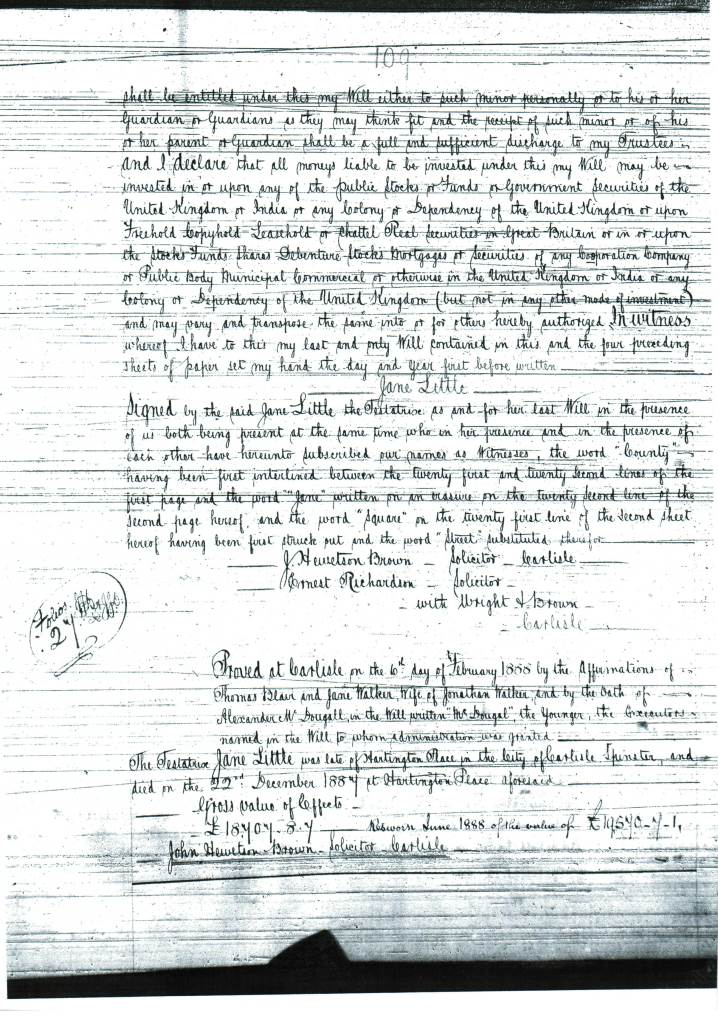 109
shall be entitled under this my Will either to such minor personally or to his or her
Guardian or Guardians as they may think fit and the receipt of such minor or of his
or her parent or Guardian shall be a full and sufficient discharge to my Trustees
and I declare that all moneys liable to be invested under this my Will may be
invested in or upon any of the public Stocks or Funds or Government Securities of the
United Kingdom or India or any Colony or Dependency of the United Kingdom or upon
Freehold Copyhold Leasehold or Chattel Real Securities in Great Britain or in or upon
the Stocks Funds Shares Debenture Stocks Mortgages or Securities of any Corporation Company
or Public Body Municipal Commercial or otherwise in the United Kingdom or India or any
Colony or Dependency of the United Kingdom (but not in any other mode of investment)
and may vary and transpose the same into or for others hereby authorized In witness
whereof I have to this my last and only Will contained in this and the four preceding
sheets of paper set my hand the day and year first before written
Jane Little
Signed by the said Jane Little the Testatrix as and for her last Will in the presence
of us both being present at the same time who in her presence and in the presence of
each other have hereunto subscribed our names as Witnesses, the word "County"
having been first interlined between the twenty first and twenty second lines of the
first page and the word "Jane" written on an erasure on the twenty second line of the
second page hereof, and the word "Square" on the twenty first line of the second sheet
hereof having been first struck out and the word "Street" substituted therefor
J. Hewetson Brown - Solicitor - Carlisle
Ernest Richardson - Solicitor -
- with Wright & Brown -
- Carlisle
Folios
27
Proved at Carlisle on the 6th day of February 1888 by the Affirmations of
Thomas Blair and Jane Walker, Wife of Jonathan Walker, and by the Oath of
Alexander McDougall, in the Will written "McDougal", the Younger, the Executors
named in the Will to whom administration was granted
The Testatrix Jane Little was late of Hartington Place in the City of Carlisle Spinster, and
died on the 22nd December 1887 at Hartington Place aforesaid
Gross value of Effects -
£18707.8.7 Resworn June 1888 of the value of £19570-7-1,
John Hewetson Brown - Solicitor Carlisle